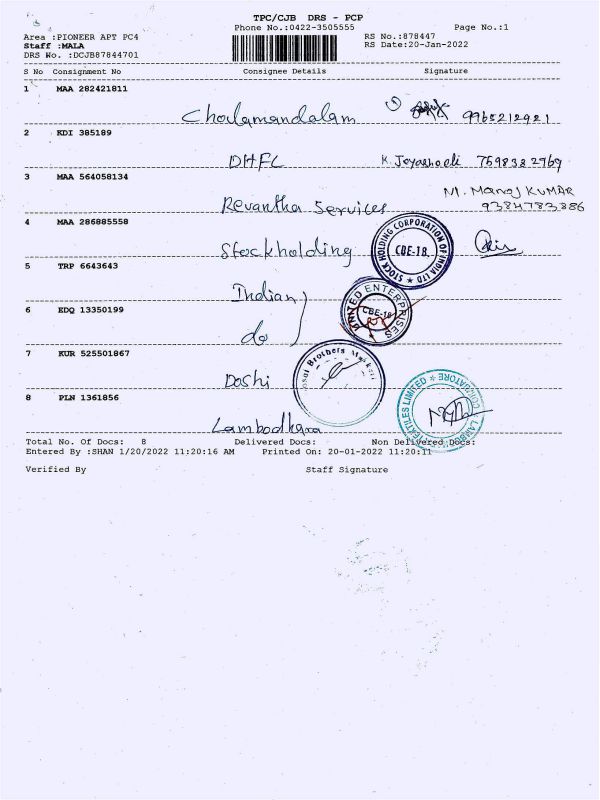 TPC/CJB DRS - PCP
Phone No.:0422-3505555 Page No.:1
Area :PIONEER APT PC4 RS No.:878447
Staff :MALA RS Date:20-Jan-2022
DRS No. :DCJB87844701
S No Consignment No Consignee Details Signature
1 MAA 282421811
Cholamandalam 9965212921
2 KDI 385189
DHFL K. Jeyashaeli 7598382769
3 MAA 564058134
Revantha Services M. Manoj KUMAR
9384783886
4 MAA 286885558
Stockholding STOCK HOLDING CORPORATION OF INDIA LTD CBE-18
5 TRP 6643643
Indian
6 EDQ 13350199
do ENTERPRISES CBE-18
7 KUR 525501867
Doshi Brothers
8 PLN 1361856
Lambodhara TEXTILES LIMITED COIMBATORE
Total No. Of Docs: 8 Delivered Docs: Non Delivered Docs:
Entered By :SHAN 1/20/2022 11:20:16 AM Printed On: 20-01-2022 11:20:11
Verified By Staff Signature